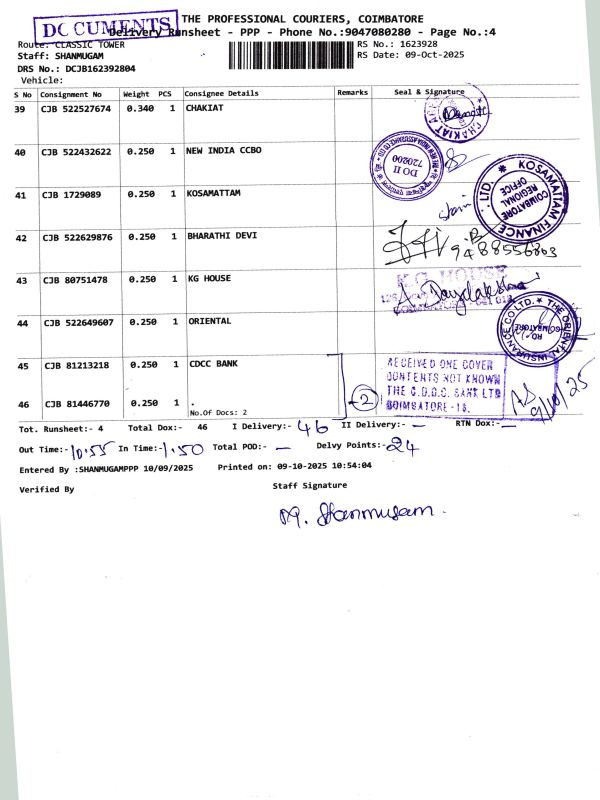 DOCUMENTS
THE PROFESSIONAL COURIERS, COIMBATORE
Delivery Runsheet - PPP - Phone No.:9047080280 - Page No.:4
Route: CLASSIC TOWER RS No.: 1623928
Staff: SHANMUGAM RS Date: 09-Oct-2025
DRS No.: DCJB162392804
Vehicle:
S No Consignment No Weight PCS Consignee Details Remarks Seal & Signature
39 CJB 522527674 0.340 1 CHAKIAT
CHAKIAT
40 CJB 522432622 0.250 1 NEW INDIA CCBO
DO II
720200
41 CJB 1729089 0.250 1 KOSAMATTAM
KOSAMATTAM FINANCE LTD.
COIMBATORE
REGIONAL
OFFICE
42 CJB 522629876 0.250 1 BHARATHI DEVI
9488556803
43 CJB 80751478 0.250 1 KG HOUSE
K.G. HOUSE
44 CJB 522649607 0.250 1 ORIENTAL
THE ORIENTAL INSURANCE CO LTD.
RO
COIMBATORE
45 CJB 81213218 0.250 1 CDCC BANK
RECEIVED ONE COVER
CONTENTS NOT KNOWN
THE C.D.C.C. BANK LTD
COIMBATORE-18.
9/10/25
46 CJB 81446770 0.250 1 .
2
No.Of Docs: 2
Tot. Runsheet:- 4 Total Dox:- 46 I Delivery:- 46 II Delivery:- — RTN Dox:- —
Out Time:- 10:55 In Time:- 1:50 Total POD:- — Delvy Points:- 24
Entered By :SHANMUGAMPPP 10/09/2025 Printed on: 09-10-2025 10:54:04
Verified By Staff Signature
M. Shanmugam.